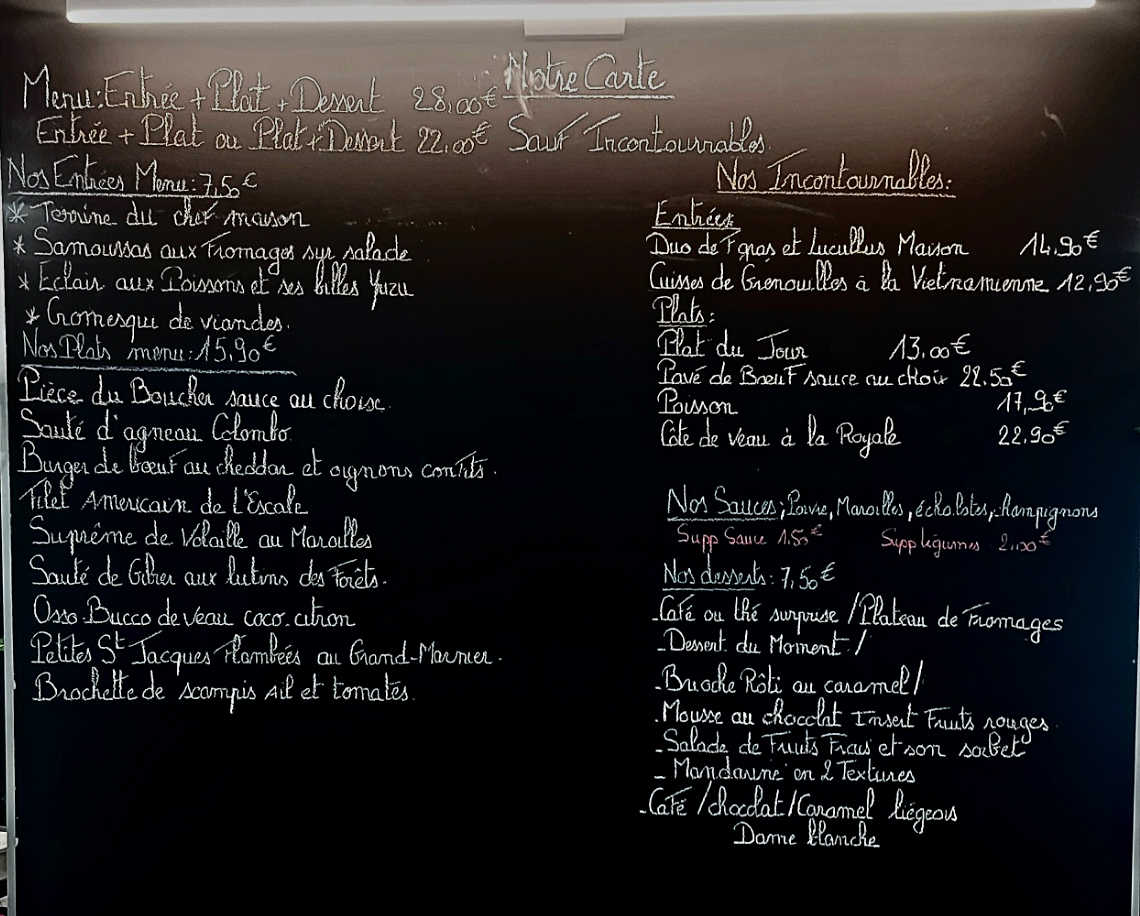 Notre Carte
Menu: Entrée + Plat + Dessert 28,00€
Entrée + Plat ou Plat + Dessert 22,00€ Sauf Incontournables.
Nos Entrées Menu: 7,50€
* Terrine du chef maison
* Samoussas aux Fromages sur salade
* Eclair aux Poissons et ses billes Yuzu
* Cromesqui de viandes.
Nos Plats menu: 15,90€
Pièce du Boucher sauce au choix.
Sauté d'agneau Colombo
Burger de bœuf au cheddar et oignons confits.
Filet Americain de L'Escale
Suprême de Volaille au Maroilles
Sauté de Gibier aux lutins des Forêts.
Osso-Bucco de veau coco-citron
Petites St Jacques Flambées au Grand-Marnier.
Brochette de scampis Ail et tomates.
Nos Incontournables:
Entrées
Duo de F gras et Lucullus Maison 14,90€
Cuisses de Grenouilles à la Vietnamienne 12,90€
Plats:
Plat du Jour 13,00€
Pavé de Bœuf sauce au choix 22,50€
Poisson 17,90€
Côte de veau à la Royale 22,90€
Nos Sauces; Poivre, Maroilles, échalotes, champignons
Supp Sauce 1,50€ Supp légumes 2,00€
Nos desserts: 7,50€
- Café ou thé surprise / Plateau de Fromages
- Dessert du Moment /
- Brioche Rôti au caramel /
. Mousse au chocolat Insert Fruits rouges.
- Salade de Fruits Frais et son sorbet
- Mandarine en 2 Textures
- Café / chocolat / Caramel liégeois
Dame blanche